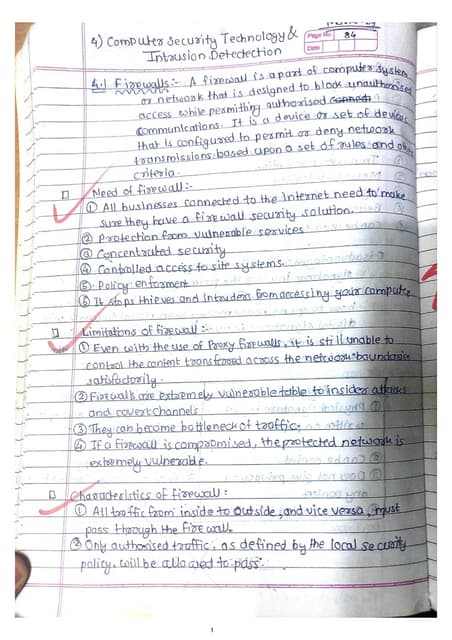 Page No. 84
Date
4) Computer Security Technology &
Intrusion Detedection
4.1 Firewalls:- A firewall is a part of computer system
or network that is designed to block unauthorised
access while permitting authorised
communications. It is a device or set of devices
that is configured to permit or deny network
transmissions based upon a set of rules and other
criteria.
Need of firewall:-
① All businesses connected to the Internet need to make
sure they have a firewall security solution.
② Protection from vulnerable services
③ Concentrated security
④ Controlled access to site systems.
⑤ Policy enforment
⑥ It stops thieves and intruders from accessing your computer
Limitations of firewall:-
① Even with the use of Proxy firewalls, it is still unable to
control the content transfered across the network boundaries
satisfactorily.
② Firewalls are extremely vulnerable table to insider attacks
and covert channels
③ They can become bottleneck of traffic.
④ If a firewall is compromised, the protected network is
extremely vulnerable.
Characteristics of firewall:
① All traffic from inside to outside, and vice versa, must
pass through the firewall.
② Only authorised traffic, as defined by the local security
policy, will be allowed to pass.
1